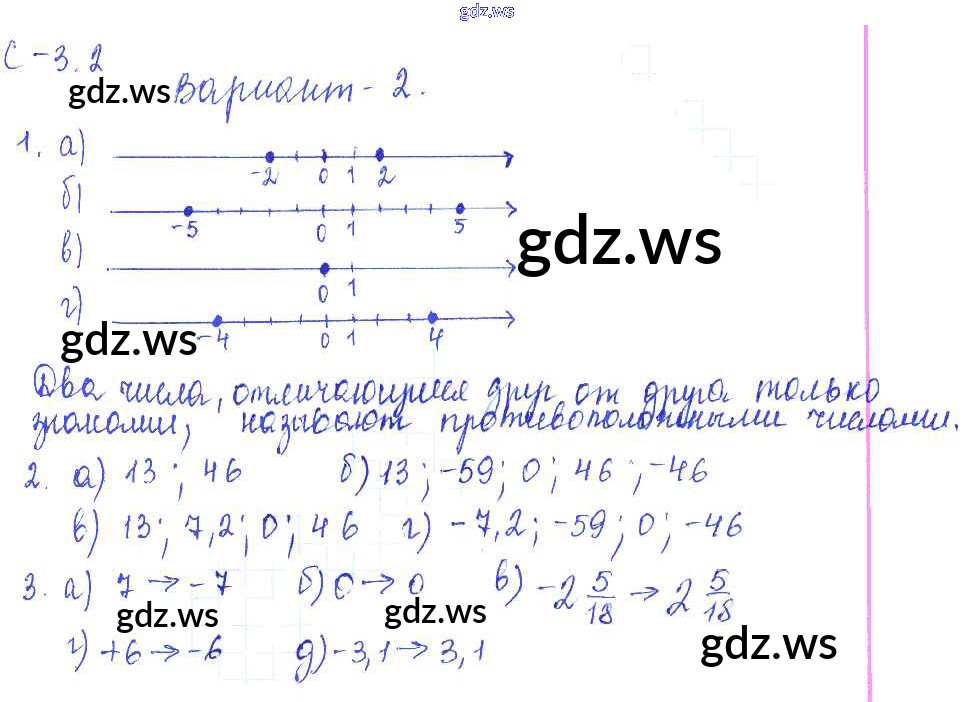 gdz.ws
С-3.2
gdz.ws Вариант-2.
1. а)
-2 0 1 2
б)
-5 0 1 5
gdz.ws
в)
0 1
г)
-4 0 1 4
gdz.ws
Два числа, отличающиеся друг от друга только
знаками, называют противоположными числами.
2. а) 13; 46 б) 13; -59; 0; 46; -46
в) 13; 7,2; 0; 46 г) -7,2; -59; 0; -46
3. а) 7 → -7 б) 0 → 0 в) -2 5/18 → 2 5/18
gdz.ws gdz.ws gdz.ws
г) +6 → -6 д) -3,1 → 3,1